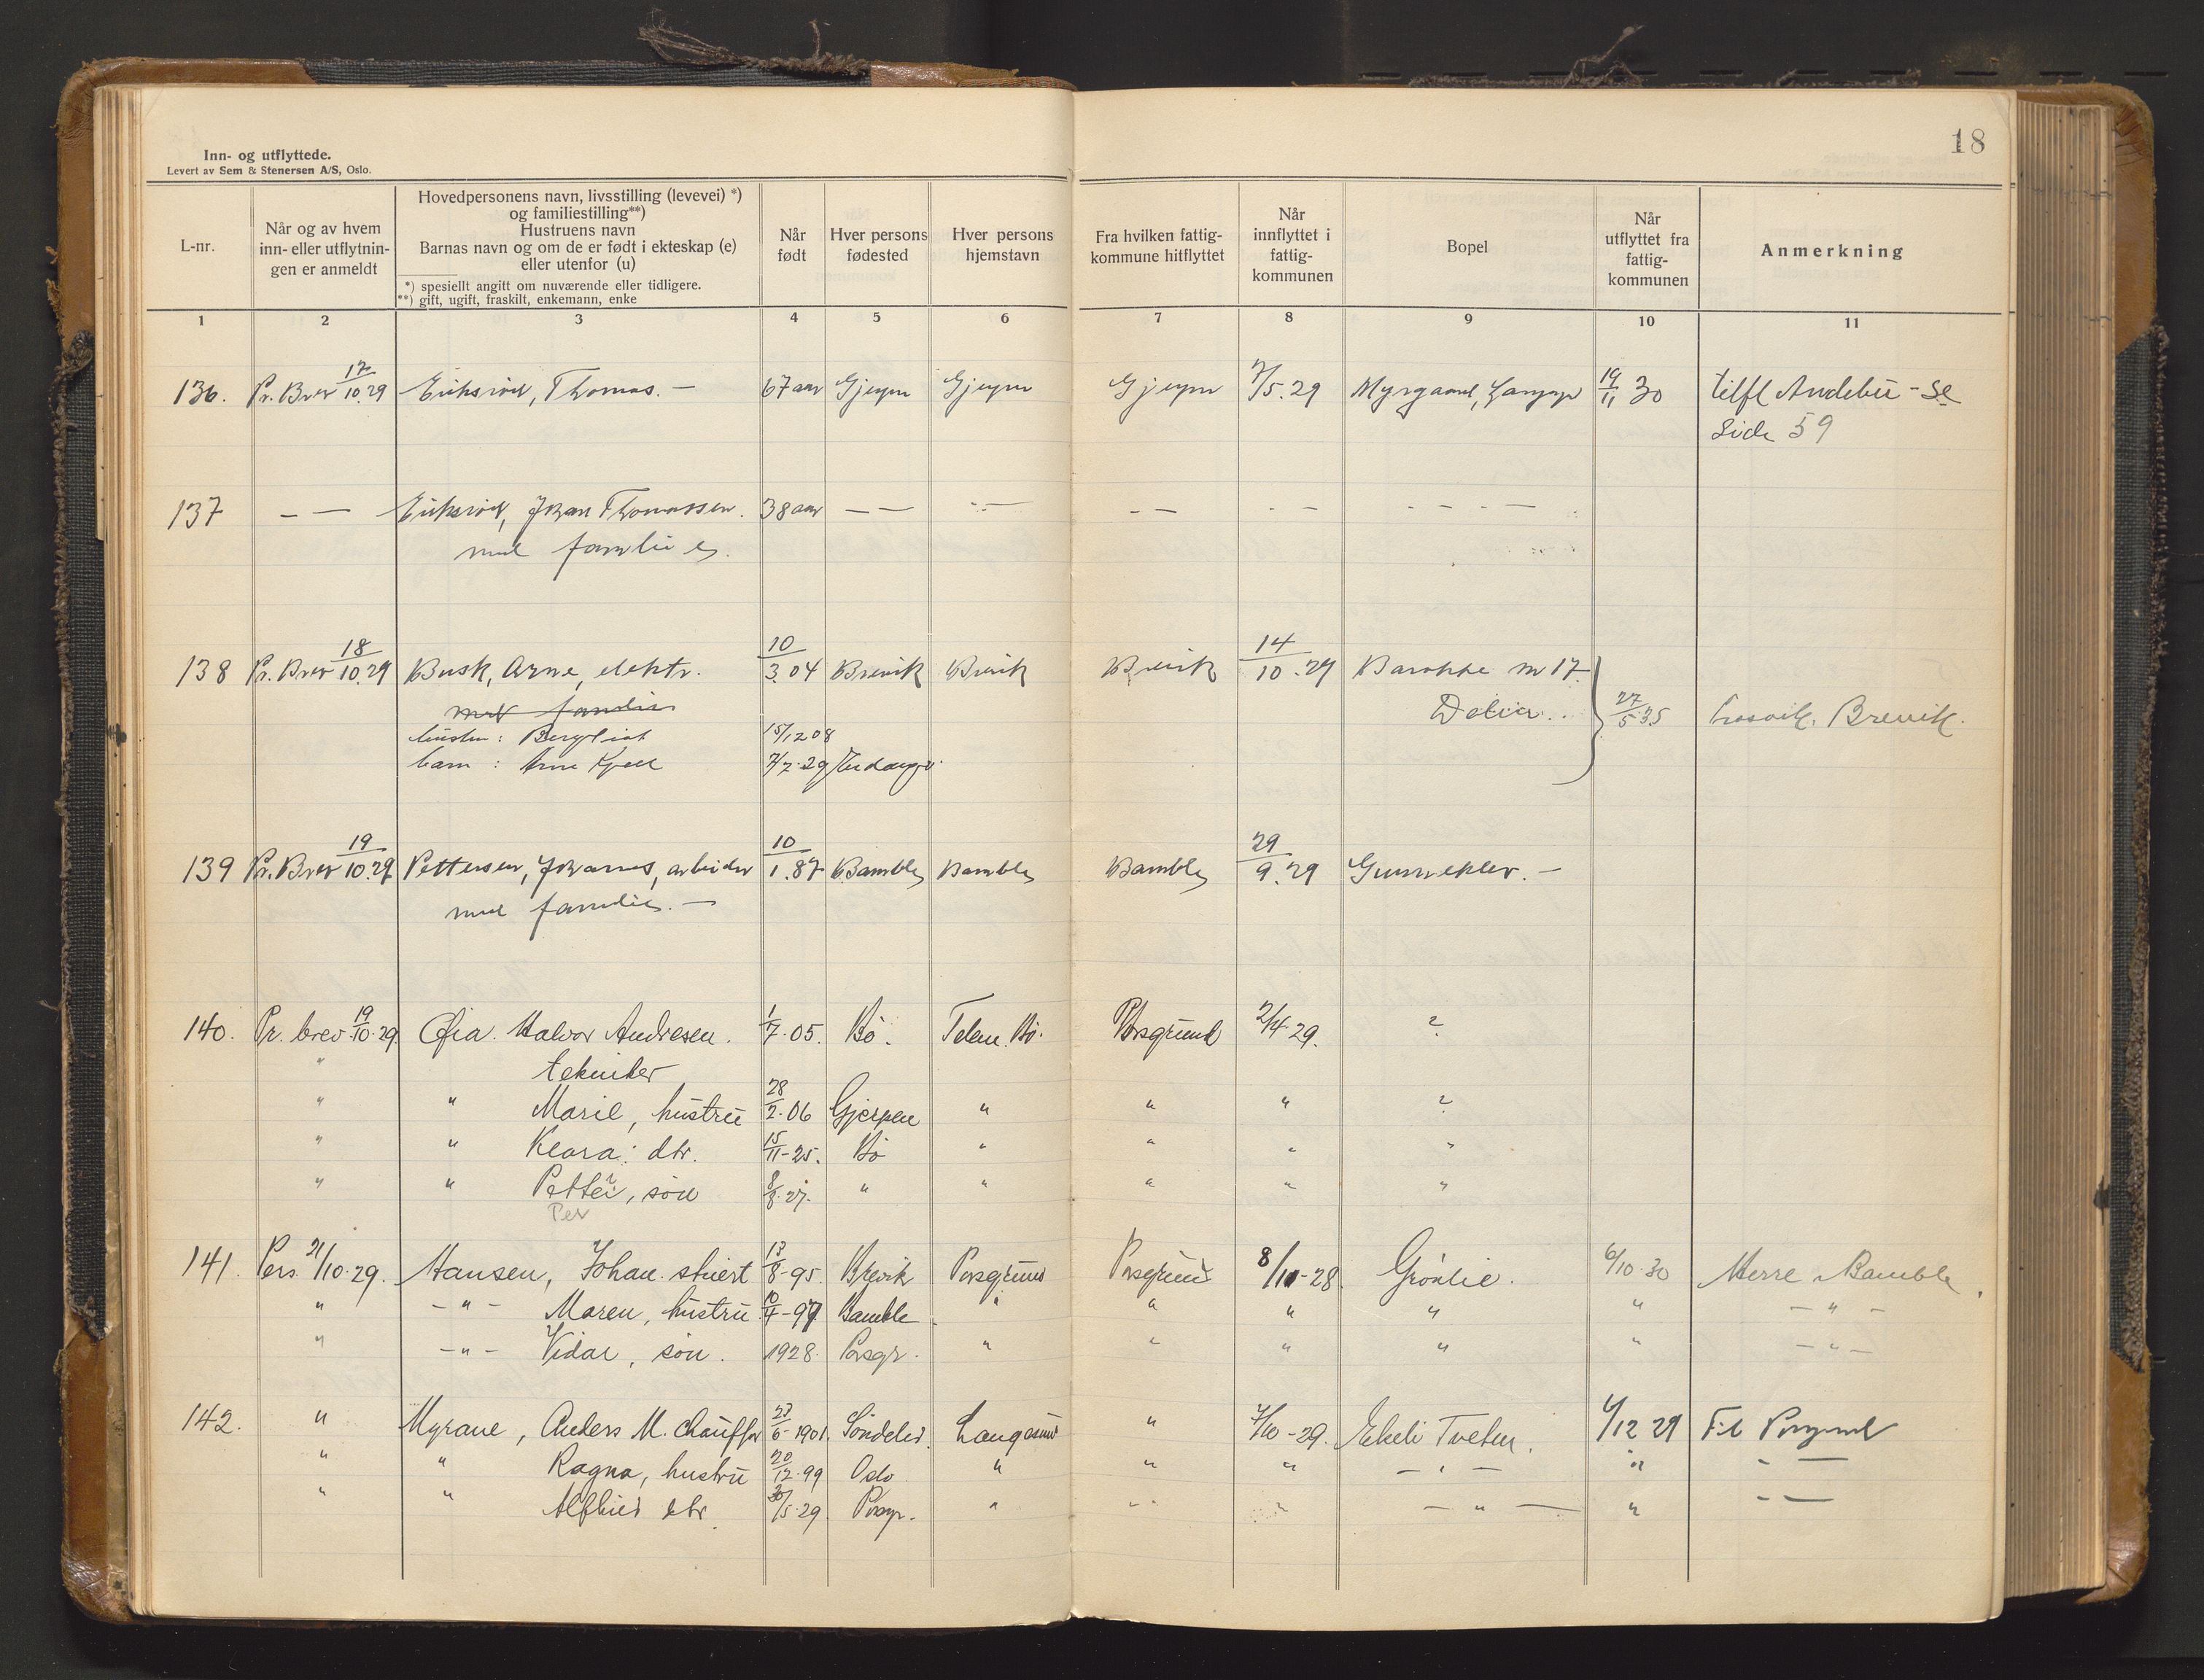 18
Inn- og utflyttede.
Levert av Sem & Stenersen A/S, Oslo.
L-nr.
Når og av hvem inn- eller utflytnin- gen er anmeldt
Hovedpersonens navn, livsstilling (levevei) *)
og familiestilling**)
Hustruens navn
Barnas navn og om de er født i ekteskap (e)
eller utenfor (u)
*) spesiellt angitt om nuværende eller tidligere.
**) gift, ugift, fraskilt, enkemann, enke
Når født
Hver persons fødested
Hver persons hjemstavn
Fra hvilken fattig- kommune hitflyttet
Når innflyttet i fattig- kommunen
Bopel
Når utflyttet fra fattig- kommunen
Anmerkning
1 2 3 4 5 6 7 8 9 10 11
136. Pr. Brev 17/10.29 Eriksrød, Thomas. — 67 aar Gjerpn Gjerpn Gjerpn 7/5.29 Myrgaard, 19/11 30 tilfl Andebu - se
Side 59
137 — — Eriksrød, Johan Thomassen. 38 aar — — — — — — — — — —
med familie
138 Pr. Brev 18/10.29 Busk, Arne, elektr. 10/3.04 Brevik Brevik Brevik 14/10.29 Barakke nr 17.
med familie 27/5.35 Brevik.
hustru: Bergliot 15/12 08
barn: Arne Kjell 7/7.29
139 Pr. Brev 19/10.29 Pettersen, Johannes, arbeider 10/1.87 Bamble Bamble Bamble 29/9.29 Gunneklev. —
med familie. —
140. Pr. brev 19/10.29 Halvor Andresen. 1/7.05. Bø. Telem. Bø. Porsgrund 2/4.29. ?
" tekniker
" " Marie, hustru 28/2.06 Gjerpen " " " ?
" " Klara: dtr. 15/11-25. Bø " " " "
" " Petter, søn 8/8.27. " " " " "
Per
141. Pers. 21/10.29. Hansen, Johan. stuert 13/8-95. Brevik Porsgrund Porsgrund 8/10-28 Grønlie. 6/10.30 Herre Bamble.
" - " - Maren, hustru 10/4-97 Bamble " " " " " - " -
" - " - Vidar, søn. 1928. Porsgr. " " " " " - " -
142. " Myrane, Anders M. chauffør 23/6-1901. Søndeled. Langesund " 7/10-29. Ekeli Tveten. 6/12 29 Til Porsgrund
" " Ragna, hustru 20/12.99 Oslo " " " — " — " - —
" " Alfhild dtr. 30/5.29 Porsgr. " " " — " — " - —